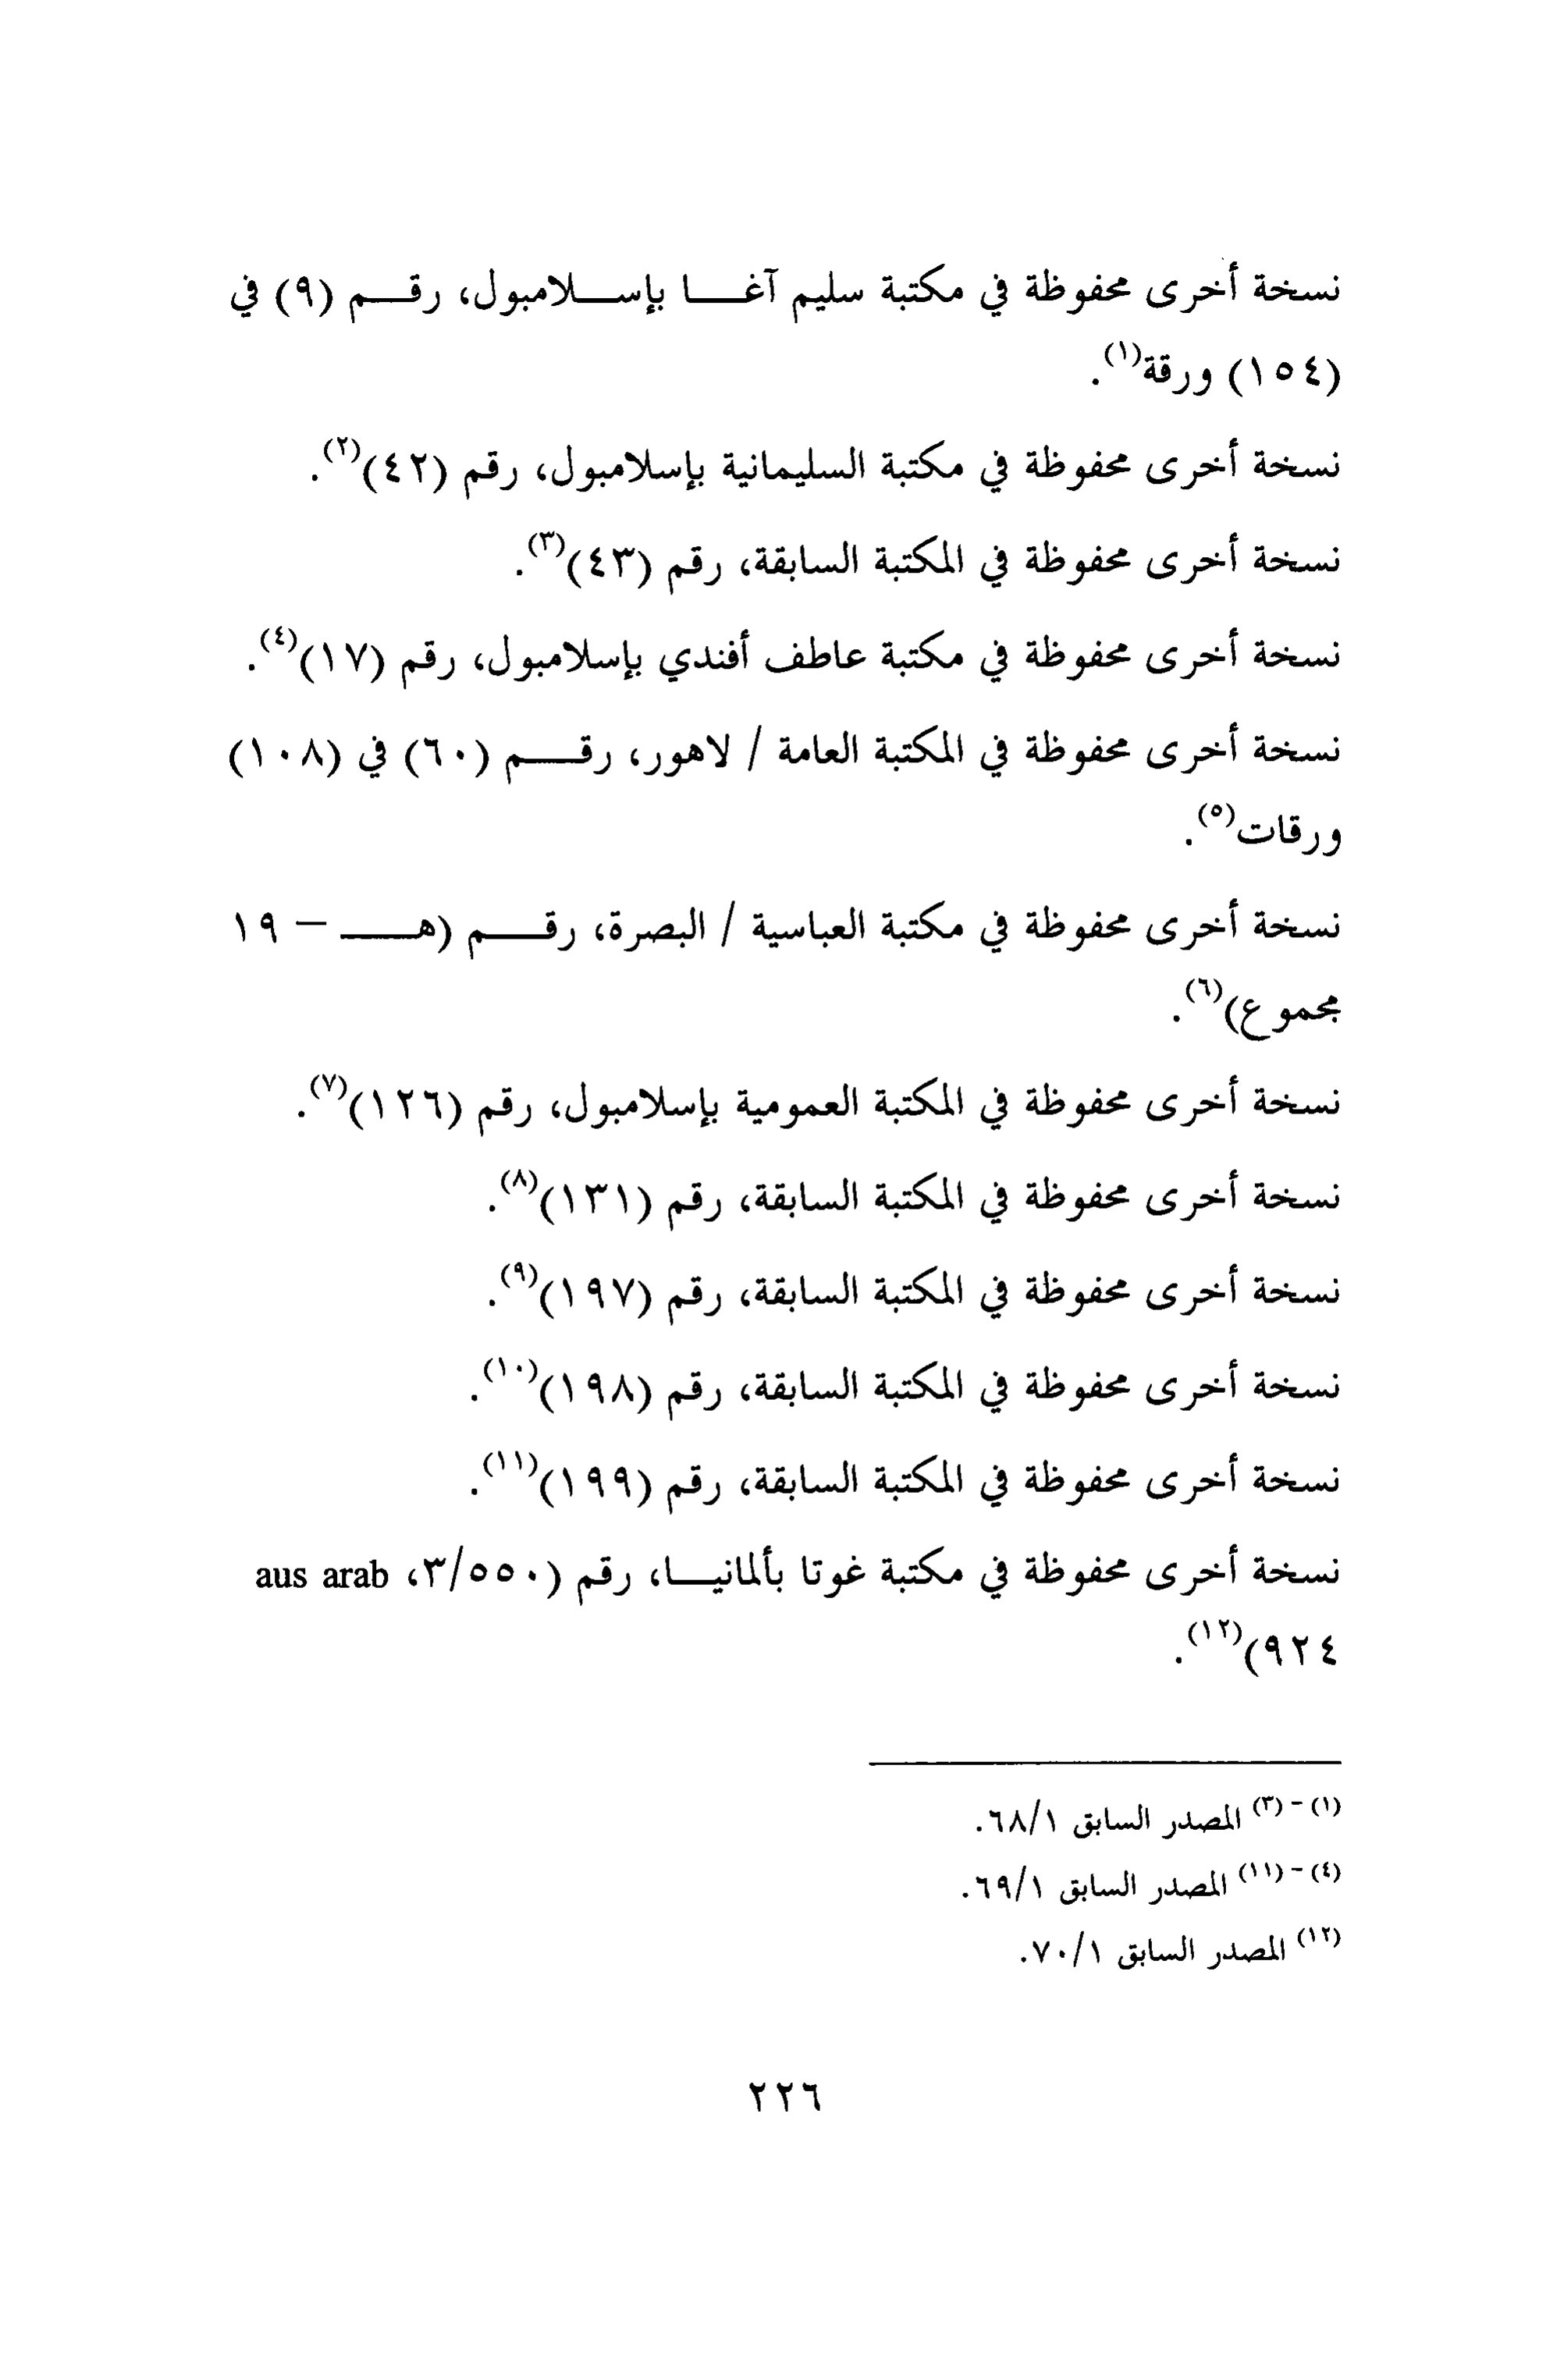 نسخة أخرى محفوظة في مكتبة سليم آغا بإسلامبول، رقم (٩) في
(١٥٤) ورقة(١).
نسخة أخرى محفوظة في مكتبة السليمانية بإسلامبول، رقم (٤٢)(٢).
نسخة أخرى محفوظة في المكتبة السابقة، رقم (٤٣)(٣).
نسخة أخرى محفوظة في مكتبة عاطف أفندي بإسلامبول، رقم (١٧)(٤).
نسخة أخرى محفوظة في المكتبة العامة / لاهور، رقم (٦٠) في (١٠٨)
ورقات(٥).
نسخة أخرى محفوظة في مكتبة العباسية / البصرة، رقم (هـ – ١٩
مجموع)(٦).
نسخة أخرى محفوظة في المكتبة العمومية بإسلامبول، رقم (١٢٦)(٧).
نسخة أخرى محفوظة في المكتبة السابقة، رقم (١٣١)(٨).
نسخة أخرى محفوظة في المكتبة السابقة، رقم (١٩٧)(٩).
نسخة أخرى محفوظة في المكتبة السابقة، رقم (١٩٨)(١٠).
نسخة أخرى محفوظة في المكتبة السابقة، رقم (١٩٩)(١١).
نسخة أخرى محفوظة في مكتبة غوتا بألمانيا، رقم (٣/٥٥٠، aus arab
٩٢٤)(١٢).
(١) – (٣) المصدر السابق ٦٨/١.
(٤) – (١١) المصدر السابق ٦٩/١.
(١٢) المصدر السابق ٧٠/١.
٢٢٦